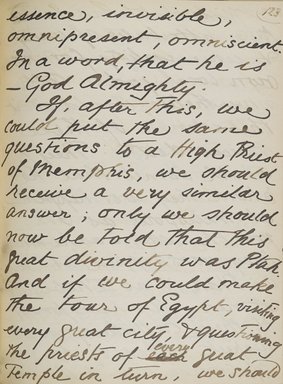 123
essence, invisible,
omnipresent, omniscient.
In a word, that he is
– God Almighty.
If, after this, we
could put the same
questions to a High Priest
of Memphis, we should
receive a very similar
answer; only we should
now be told that this
great divinity was Ptah.
And if we could make
the tour of Egypt, visiting
every great city & questioning
the priests of each every great
Temple in turn we should